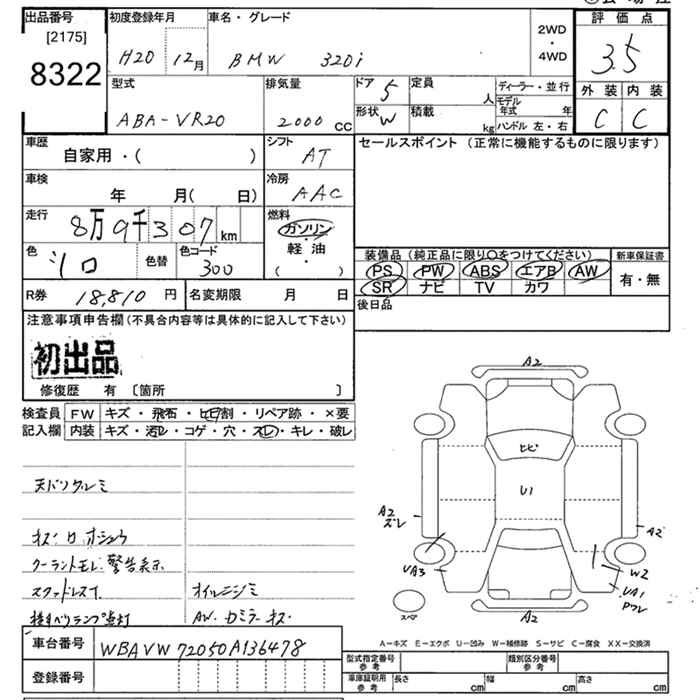 出品番号
[2175]
8322
初度登録年月
H20 12月
車名・グレード
BMW 320i
2WD
・
4WD
評価点
3.5
外装 内装
C C
型式
ABA-VR20
排気量
2000 cc
ドア 5
形状 W
定員 人
積載 kg
ディーラー・並行
モデル年式 年
ハンドル 左・右
車歴
自家用・( )
シフト
AT
セールスポイント (正常に機能するものに限ります)
車検
年 月( 日)
冷房
AAC
走行
8万9千307 km
燃料
ガソリン
・
軽油
・
( )
色
シロ
色替
色コード
300
装備品 (純正品に限り○をつけてください)
新車保証書
PS PW ABS エアB AW
SR ナビ TV カワ
有・無
R券 18,810 円
名変期限 月 日
後日品
注意事項申告欄(不具合内容等は具体的に記入して下さい)
初出品
修復歴 有 〔箇所 〕
検査員記入欄
FW キズ・飛石・ヒビ割・リペア跡・×要
内装 キズ・汚レ・コゲ・穴・スレ・キレ・破レ
A2
ヒビ
U1
A2
スレ
A2
UA3
W2
UA1
ワレ
スペア
A2
クーラントモレ.警告表示
スタッドレスT
オイルニジミ
AW.カミラーキズ
車台番号
WBAVW72050A136478
登録番号
A-キズ E-エクボ U-凹み W-補修跡 S-サビ C-腐食 XX-交換済
型式指定番号 参考
類別区分番号 参考
車庫証明用 参考
長さ cm
幅 cm
高さ cm